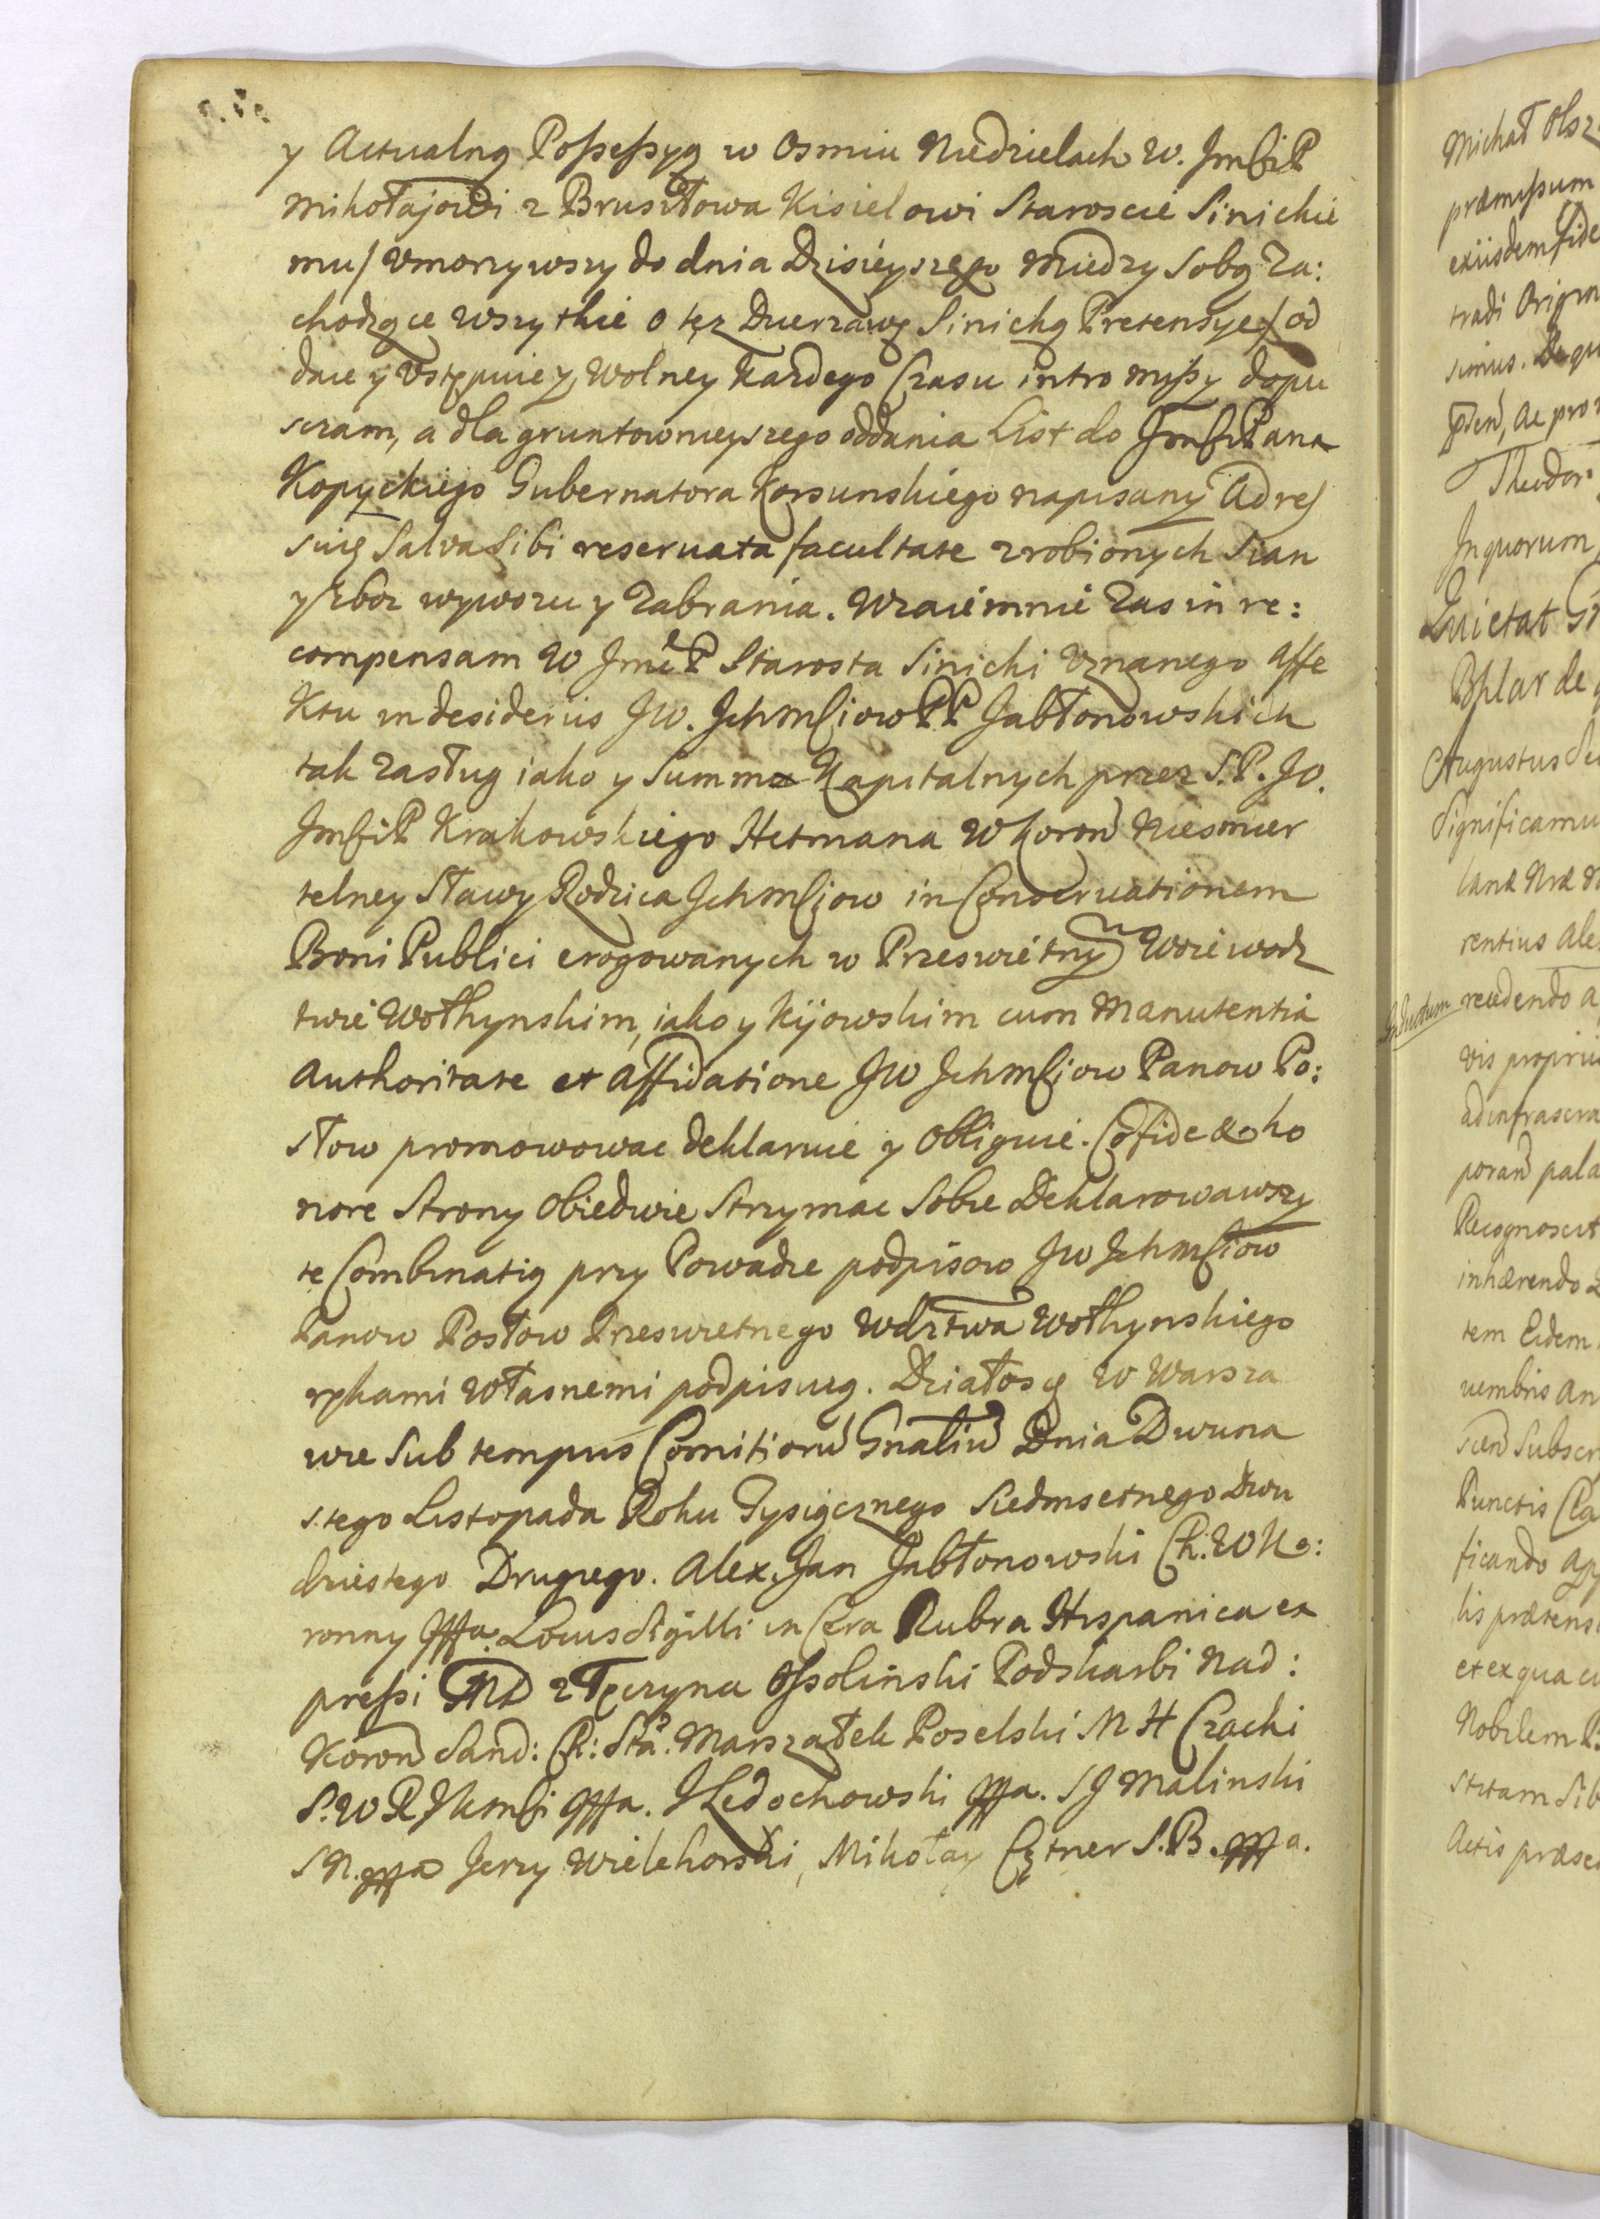 y Actualną Possessyą w Osmiu Niedzielach W. JmśćiP
Mikołajowi z Brusiłowa Kisielowi Staroscie Sinickie
mu/ Vmorzywszy do dnia Dzisieyszego Miedzy Sobą Za:
chodzące Wszytkie o tęz Dzierzawę Sinicką Pretensye/ od
daie y Vstępuie y Wolney Kazdego Czasu intromissy dopu
szczam, a dla gruntownieyszego oddania List do JmśćiPana
Kopyckiego Gubernatora Korsunskiego napisany Adres
suię Salva Sibi reseruata facultate zrobionych Sian
y Zboz wywozu y Zabrania. Wzaiemnie Zas in re:
compensam W JmćP Starosta Sinicki Vznanego Affe
ktu in desiderijs JW. JchmśćiowPP Jabłonowskich
tak Zasług iako y Summ Kapitalnych przez S.P. JO.
JmśćiP Krakowskiego Hetmana W koron Niesmier
telney Sławy Rodzica Jchmśćiow in Conseruationem
Boni Publici erogowanych w Przeswietnym Woiewodz
twie Wołhynskim, iako y Kijowskim cum Manutentia
Authoritate et Affidatione JW Jchmśćiow Panow Po:
słow promowowac deklaruie y Obliguie. Co fide & ho
nore Strony Obiedwie Strzymac Sobie Deklarowawszy
te Combinatią przy Powadze podpisow JW Jchmśćiow
Panow Posłow Przeswietnego Wdztwa Wołhynskiego
rękami Własnemi podpisuią. Działosię W Warsza
wie Sub tempus Comitiorū Gnaliū Dnia Dwuna
stego Listopada Roku Tysiącznego Siedmsetnego Dwu
dziestego Drugiego. Alex. Jan Jabłonowski Ch. W Ko:
ronny mppa. Locus Sigilli in Cera Rubra Hispanica ex
pressi z Tęczyna Ossolinski Podskarbi Nad:
Koron Sand: Ch: Sta. Marszałek Poselski M H Czacki
S. W R mppa. J Ledochowski mppa. S J Malinski
S N. mppa Jerzy Wielehorski, Mikołay Cętner S. B. mppa.
Michał Olsz
præmissum
exiisdem fide
tradi Origin
simus. De qu
Theodor
Jn quorum
Quietat
Augustus
Significamu
rentius Ale
recedendo a
vis propriis
ad infrascrip
Recognoscit
inhærendo
tem Eidem
uembris An
Subscr
Punctis
ficando
lis prætens
et ex qua
Nobilem
stitam Sib
Actis præsen